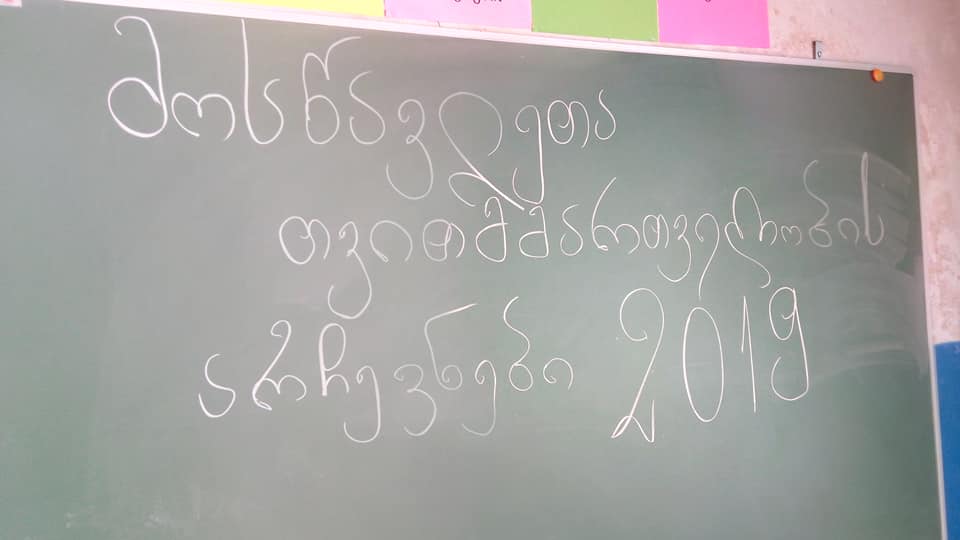 მოსწავლეთა
თვითმმართველობის
არჩევნები 2019